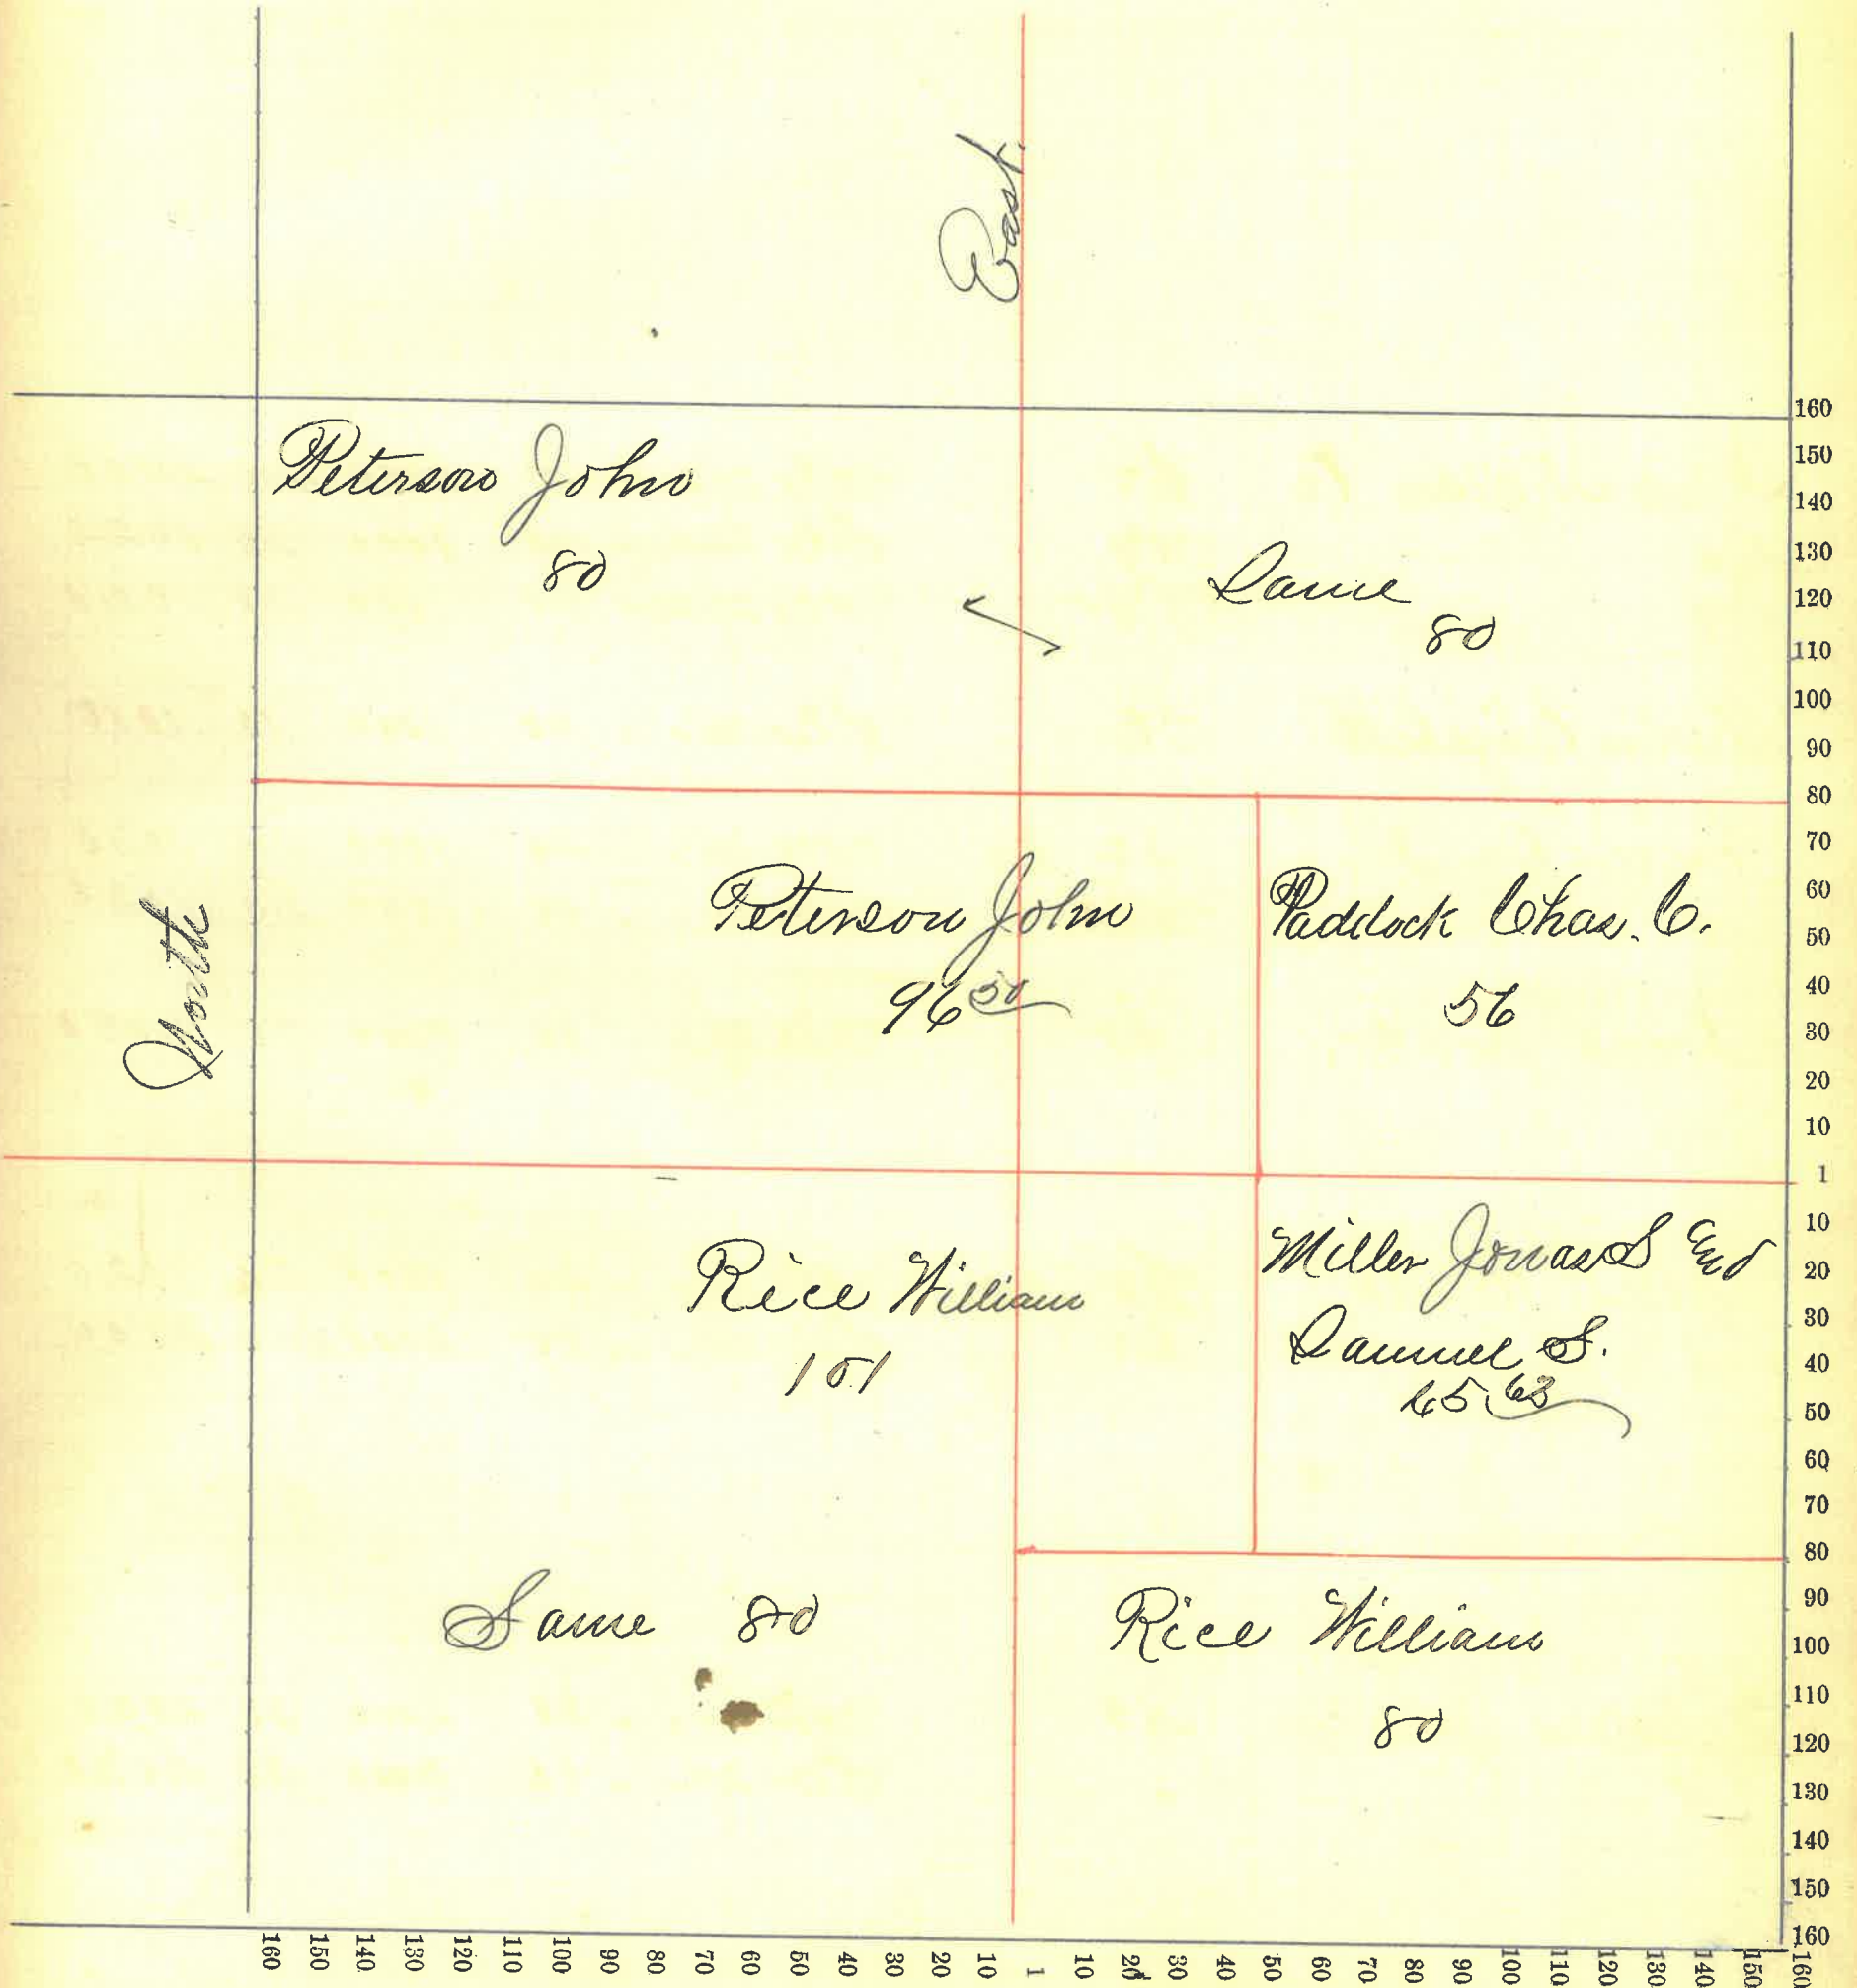 East.
Peterson John
80
Same
80
North
Peterson John
96 50
Paddock Chas. C.
56
Rice William
101
Miller Jonas S End
Samuel S.
Same 80
Rice William
80
160
150
140
130
120
110
100
90
80
70
60
50
40
30
20
10
1
10
20
30
40
50
60
70
80
90
100
110
120
130
140
150
160
160 150 140 130 120 110 100 90 80 70 60 50 40 30 20 10 1 10 20 30 40 50 60 70 80 90 100 110 120 130 140 150 160